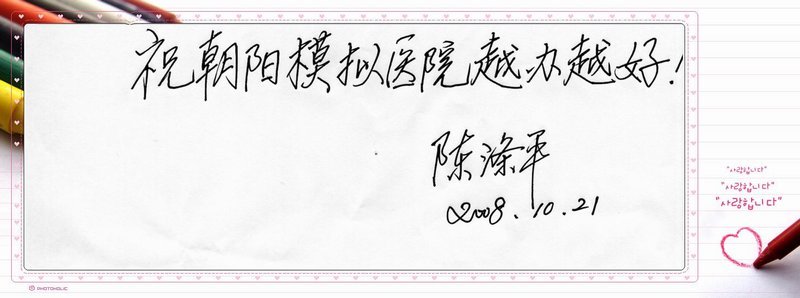 祝朝阳模拟医院越办越好！
陈涤平
2008.10.21
"사랑합니다"
"사랑합니다"
"사랑합니다"
PHOTOHOLIC